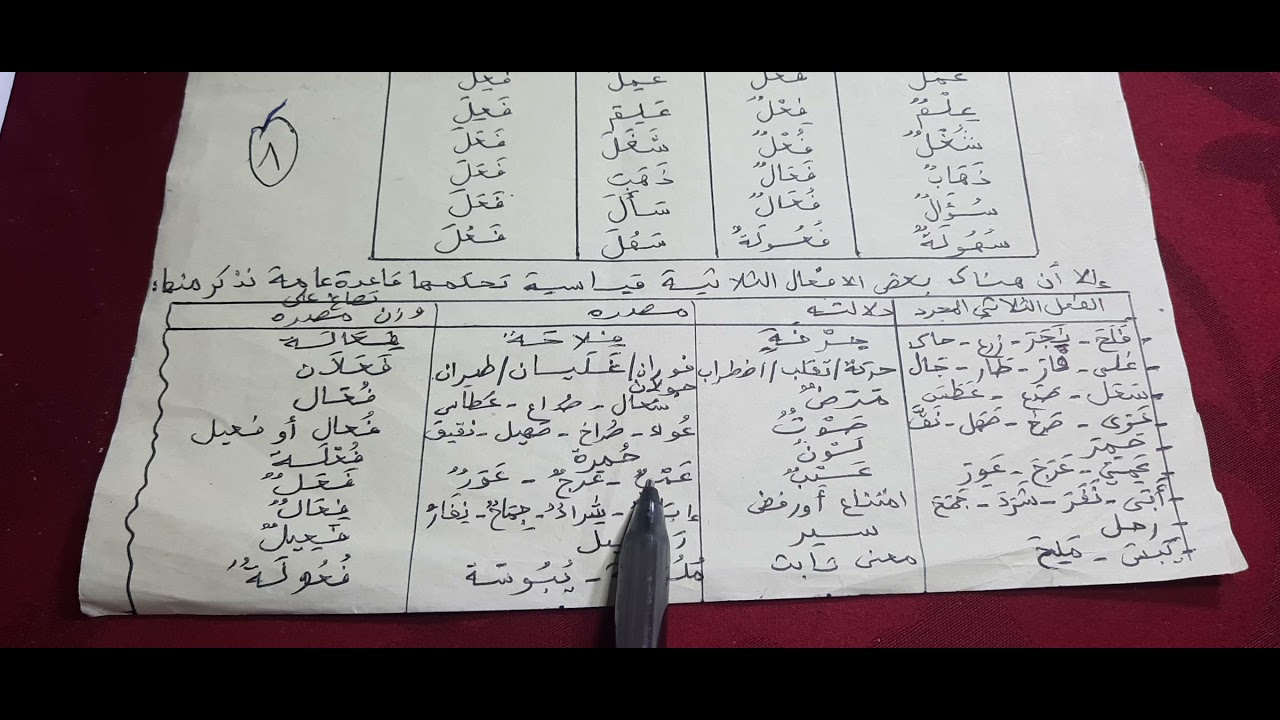 عِلْمٌ فِعْلٌ عَلِمَ فَعِلَ
شُغْلٌ فُعْلٌ شَغَلَ فَعَلَ
ذَهَابٌ فَعَالٌ ذَهَبَ فَعَلَ
سُؤَالٌ فُعَالٌ سَأَلَ فَعَلَ
سُهُولَةٌ فُعُولَةٌ سَهُلَ فَعُلَ
٨
إلا أن هناك بعض الافعال الثلاثية قياسية تحكمها قاعدة عامة نذكر منها:
الفعل الثلاثي المجرد دلالته مصدره تصاغ على وزن مصدره
- فَلَحَ - نَجَرَ - زرع - حاك حِرْفَةٍ فِلاحَةٌ فِعَالَة
- غلى - فَارَ - طار - جال حركة/تقلب/اضطراب فوران/غَلَيان/طيران جولان فَعَلَان
- سعل - صدع - عَطَسَ مَرَضٌ سُعال - صُداع - عُطاس فُعَال
- عَوَى - صرخ - صهل - نَقَّ صَوْتٌ عُواء - صُراخ - صهيل - نقيق فُعال أو فعيل
- حَمِرَ لَوْنٌ حُمرة فُعْلَة
- عَمِيَ - عَرَجَ - عَوِرَ عَيْبٌ عَرَجٌ - عَوَرٌ فَعَلٌ
- أَبَى - نَفَرَ - شَرَدَ - جَمَعَ امتناع أو رفض شِرادٌ - جِماحٌ - نِفَارٌ فِعَالٌ
- رحل سير فَعِيلٌ
- يَبِسَ - مَلِحَ معنى ثابت يُبُوسَة فُعُولَةٌ